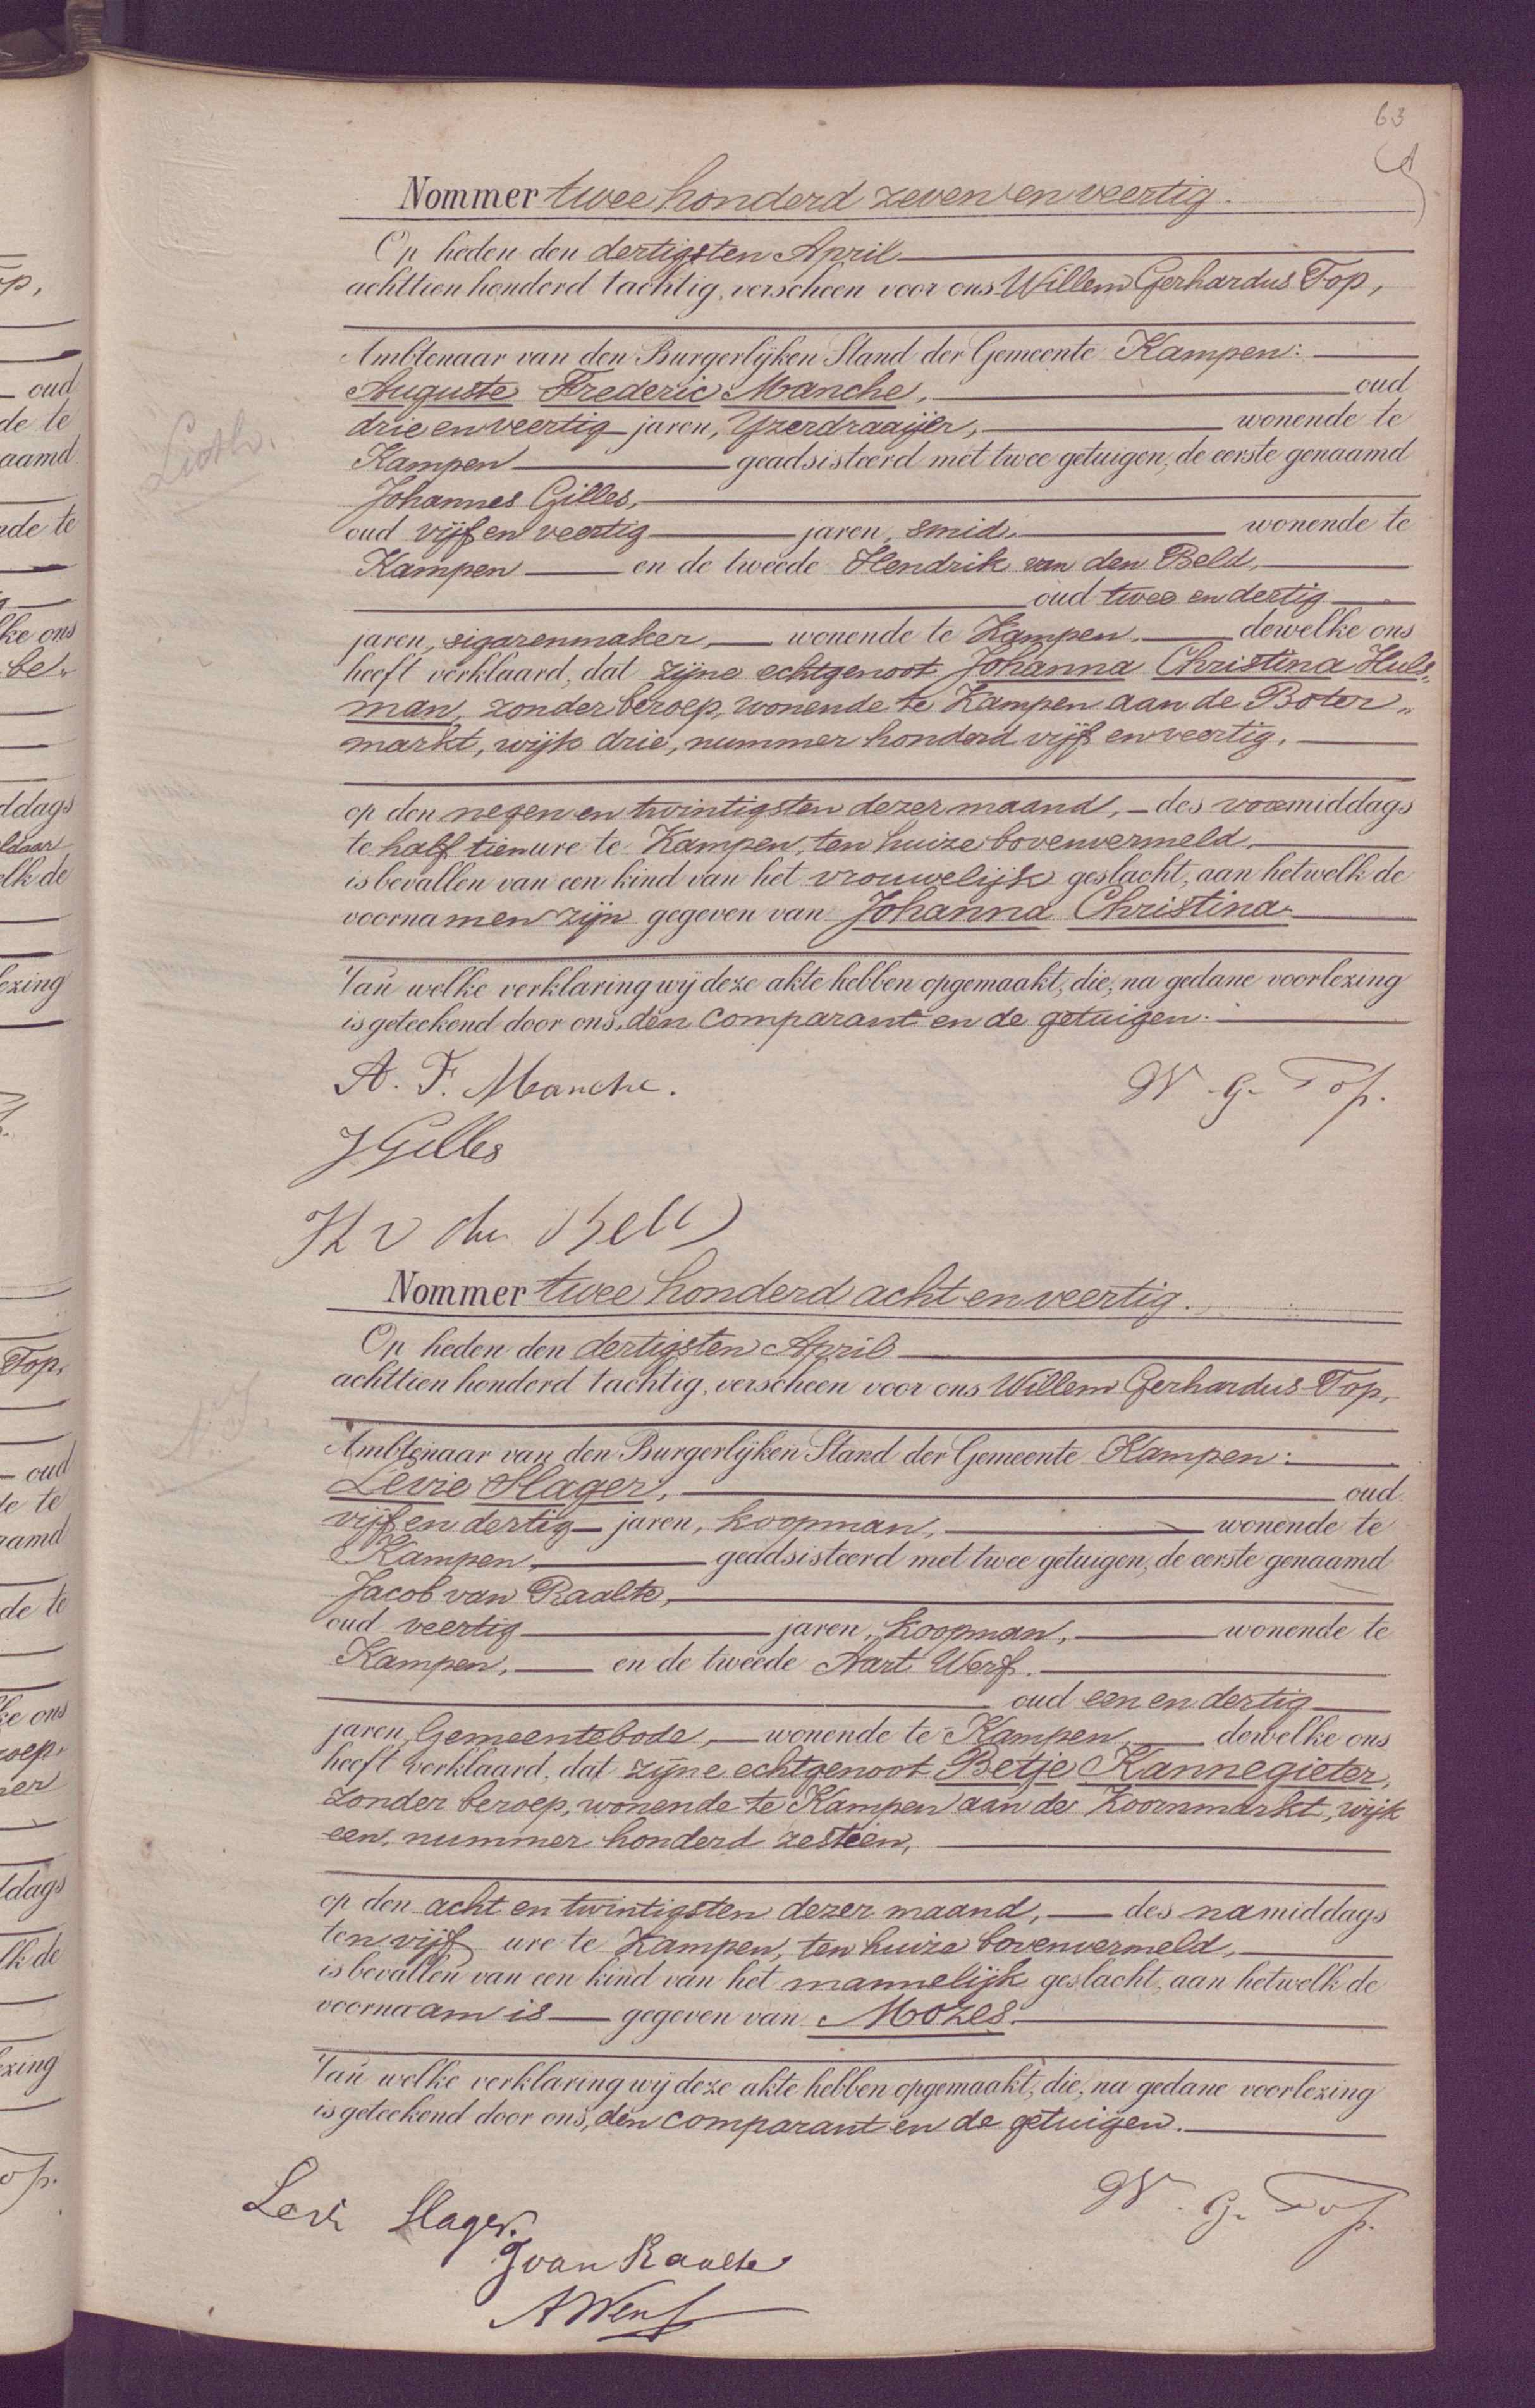 63
Nommer twee honderd zeven en veertig.
Op heden den dertigsten April
achttien honderd tachtig, verscheen voor ons Willem Gerhardus Top,
Ambtenaar van den Burgerlijken Stand der Gemeente Kampen:
Auguste Frederic Manche, oud
drie en veertig jaren, Yzerdraaijer, wonende te
Kampen geadsisteerd met twee getuigen, de eerste genaamd
Johannes Gilles,
oud vijf en veertig jaren, smid, wonende te
Kampen en de tweede Hendrik van den Beld,
oud twee en dertig
jaren, sigarenmaker, wonende te Kampen, dewelke ons
heeft verklaard, dat zijne echtgenoot Johanna Christina Huls„
man, zonder beroep, wonende te Kampen aan de Boter„
markt, wijk drie, nummer honderd vijf en veertig,
op den negen en twintigsten dezer maand, des voormiddags
te half tien ure te Kampen, ten huize bovenvermeld,
is bevallen van een kind van het vrouwelijk geslacht, aan hetwelk de
voornamen zijn gegeven van Johanna Christina.
Van welke verklaring wij deze akte hebben opgemaakt, die, na gedane voorlezing
is geteekend door ons, den comparant en de getuigen.
A. F. Manche. W. G. Top.
J Gilles
H v den Beld
Nommer twee honderd acht en veertig.
Op heden den dertigsten April
achttien honderd tachtig, verscheen voor ons Willem Gerhardus Top,
Ambtenaar van den Burgerlijken Stand der Gemeente Kampen:
Levie Slager, oud
vijf en dertig jaren, koopman, wonende te
Kampen, geadsisteerd met twee getuigen, de eerste genaamd
Jacob van Raalte,
oud veertig jaren, koopman, wonende te
Kampen, en de tweede Aart Werf.
oud een en dertig
jaren, Gemeentebode, wonende te Kampen, dewelke ons
heeft verklaard, dat zijne echtgenoot Betje Kannegieter,
zonder beroep, wonende te Kampen aan de Koornmarkt, wijk
een, nummer honderd zestien,
op den acht en twintigsten dezer maand, des namiddags
ten vijf ure te Kampen, ten huize bovenvermeld,
is bevallen van een kind van het mannelijk geslacht, aan hetwelk de
voornaam is gegeven van Mozes.
Van welke verklaring wij deze akte hebben opgemaakt, die, na gedane voorlezing
is geteekend door ons, den comparant en de getuigen.
Levi Slager. W. G. Top.
J van Raalte
A Werf